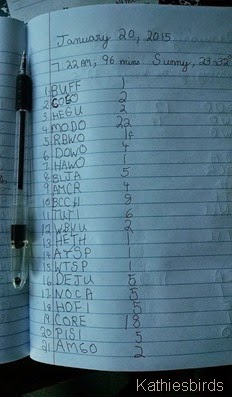 January 20, 2015
7:22AM, 96 mins Sunny, 23-32
1 BUFF 1
2 COGO 2
3 HEGU 2
4 MODO 22
5 RBWO 1f
6 DOWO 4
7 HAWO 1
8 BLJA 5
9 AMCR 4
10 BCCH 8
11 TUTI 6
12 WBNU 2
13 HETH 1
14 ATSP 1
15 WTSP 1
16 DEJU 5
17 NOCA 5
18 HOFI 5
19 CORE 18
20 PISI 5
21 AMGO 2
Kathiesbirds